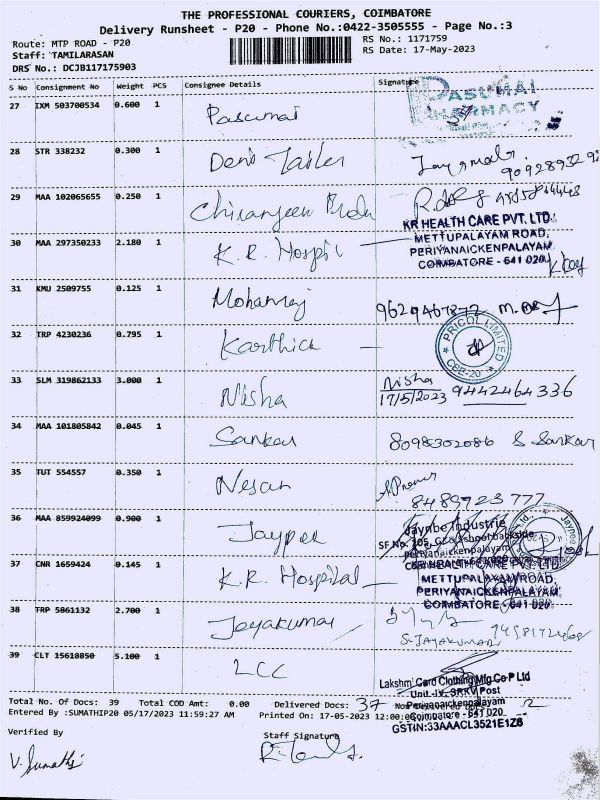 THE PROFESSIONAL COURIERS, COIMBATORE
Delivery Runsheet - P20 - Phone No.:0422-3505555 - Page No.:3
Route: MTP ROAD - P20
RS No.: 1171759
Staff: TAMILARASAN
RS Date: 17-May-2023
DRS No.: DCJB117175903
S No Consignment No Weight PCS Consignee Details Signature
27 IXM 503700534 0.600 1 Pasumai
PASUMAI
PHARMACY
28 STR 338232 0.300 1
29 MAA 102065655 0.250 1 Chiranjeevi
KR HEALTH CARE PVT. LTD.
METTUPALAYAM ROAD,
PERIYANAICKENPALAYAM
COIMBATORE - 641 020
30 MAA 297350233 2.180 1 K.R. Hospital
31 KMU 2509755 0.125 1 Mohanraj
32 TRP 4230236 0.795 1 Karthick
PRICOL LIMITED
CBE-20
33 SLM 319862133 3.000 1 Nisha Nisha
17/5/2023 9442464336
34 MAA 101805842 0.045 1 Sankar 8098302086 S Sankar
35 TUT 554557 0.350 1 Nesan
8489723777
36 MAA 859924099 0.900 1 Jaypee
Jaynbe Industrie
Periyanaickenpalayam
37 CNR 1659424 0.145 1 K.R. Hospital
KR HEALTH CARE PVT. LTD
METTUPALAYAM ROAD,
PERIYANAICKENPALAYAM
COIMBATORE - 641 020
38 TRP 5861132 2.700 1 Jeyakumar
S. JAYAKUMAR
39 CLT 15618850 5.100 1 LCC
Lakshmi Card Clothing Mfg Co P Ltd
Unit-IX, SRKV Post
Periyanaickenpalayam
Coimbatore - 641 020
GSTIN:33AAACL3521E1Z6
Total No. Of Docs: 39 Total COD Amt: 0.00 Delivered Docs: 37 2
Entered By :SUMATHIP20 05/17/2023 11:59:27 AM Printed On: 17-05-2023 12:00
Verified By Staff Signature
V. Sumathi